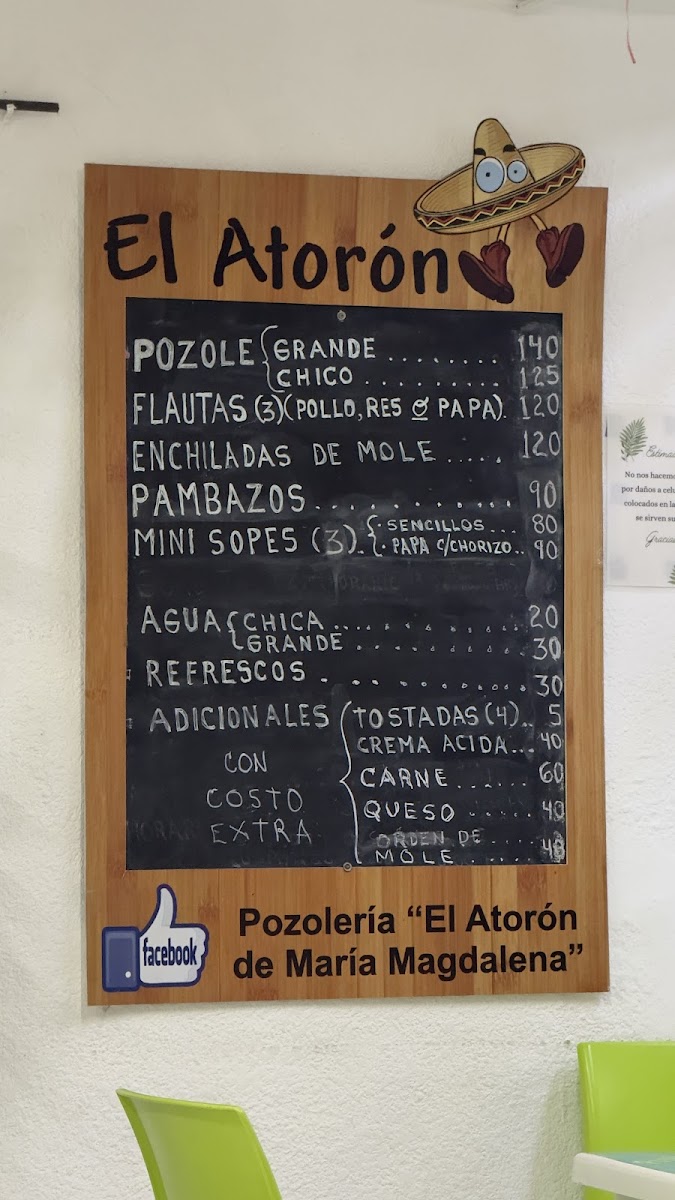 El Atorón
POZOLE { GRANDE ........ 140
CHICO .......... 125
FLAUTAS (3)(POLLO, RES Ó PAPA). 120
ENCHILADAS DE MOLE ..... 120
PAMBAZOS .......... 90
MINI SOPES (3). { · SENCILLOS... 80
· PAPA C/CHORIZO.. 90
AGUA { CHICA .......... 20
GRANDE .......... 30
REFRESCOS .......... 30
ADICIONALES { TOSTADAS (4).. 5
CREMA ACIDA... 40
CON
CARNE ...... 60
COSTO
QUESO ...... 40
EXTRA
ORDEN DE
MOLE ......
facebook
Pozolería “El Atorón
de María Magdalena”
No nos hacemo
por daños a
colocados en la
se sirven su